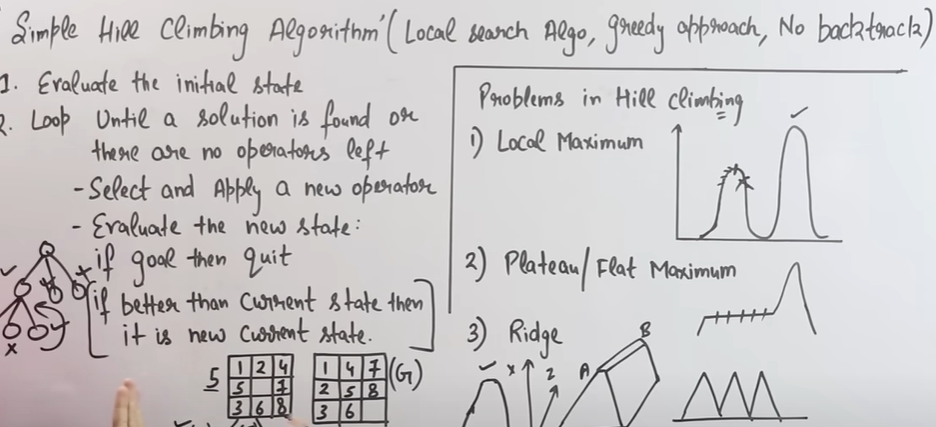 Simple Hill Climbing Algorithm (Local search Algo, greedy approach, No backtrack)
1. Evaluate the initial state
2. Loop Until a solution is found or
there are no operators left
- Select and Apply a new operator
- Evaluate the new state:
if goal then quit
if better than current state then
it is new current state.
S
1 2 4
5 7
3 6 8
1 4 7
2 5 8
3 6
(G)
Problems in Hill climbing
1) Local Maximum
2) Plateau/Flat Maximum
3) Ridge
X
Z
A
B